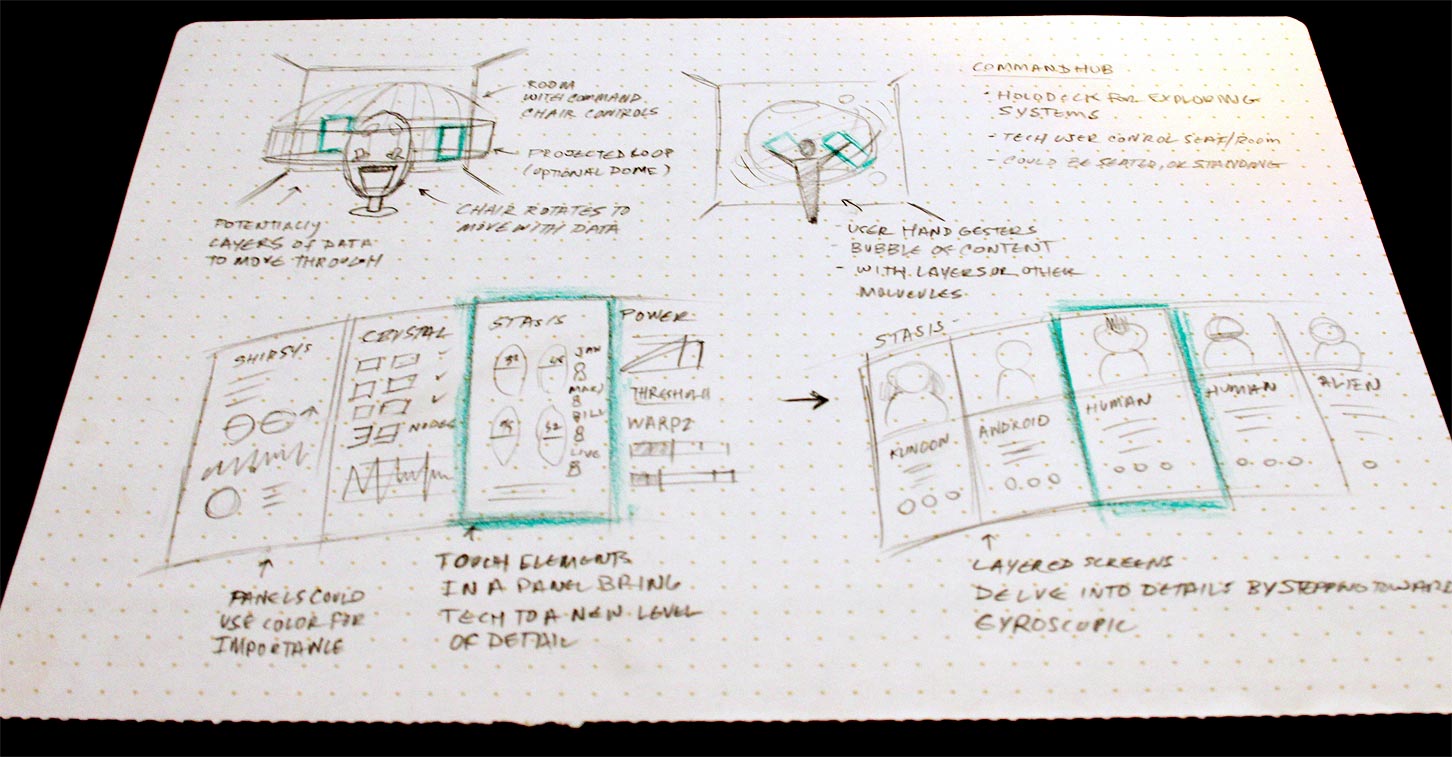 ROOM
WITH COMMAND
CHAIR CONTROLS
PROJECTED LOOP
(OPTIONAL DOME)
POTENTIALLY
LAYERS OF DATA
TO MOVE THROUGH
CHAIR ROTATES TO
MOVE WITH DATA
- USER HAND GESTERS
- BUBBLE OF CONTENT
- WITH LAYERS OR OTHER
MOLUCULES.
COMMAND HUB
- HOLODECK FOR EXPLORING
SYSTEMS
- TECH USER CONTROL SEAT/ROOM
- COULD BE SEATED, OR STANDING
SHIPSYS
CRYSTAL
NODES
STASIS
JAN
BILL
LIVE
POWER
THRESHOLD
WARP2
PANELS COULD
USE COLOR FOR
IMPORTANCE
TOUCH ELEMENTS
IN A PANEL BRING
TECH TO A NEW LEVEL
OF DETAIL
STASIS
ANDROID
HUMAN
HUMAN
ALIEN
LAYERED SCREENS
DELVE INTO DETAILS BY STEPPING TOWARD
GYROSCOPIC